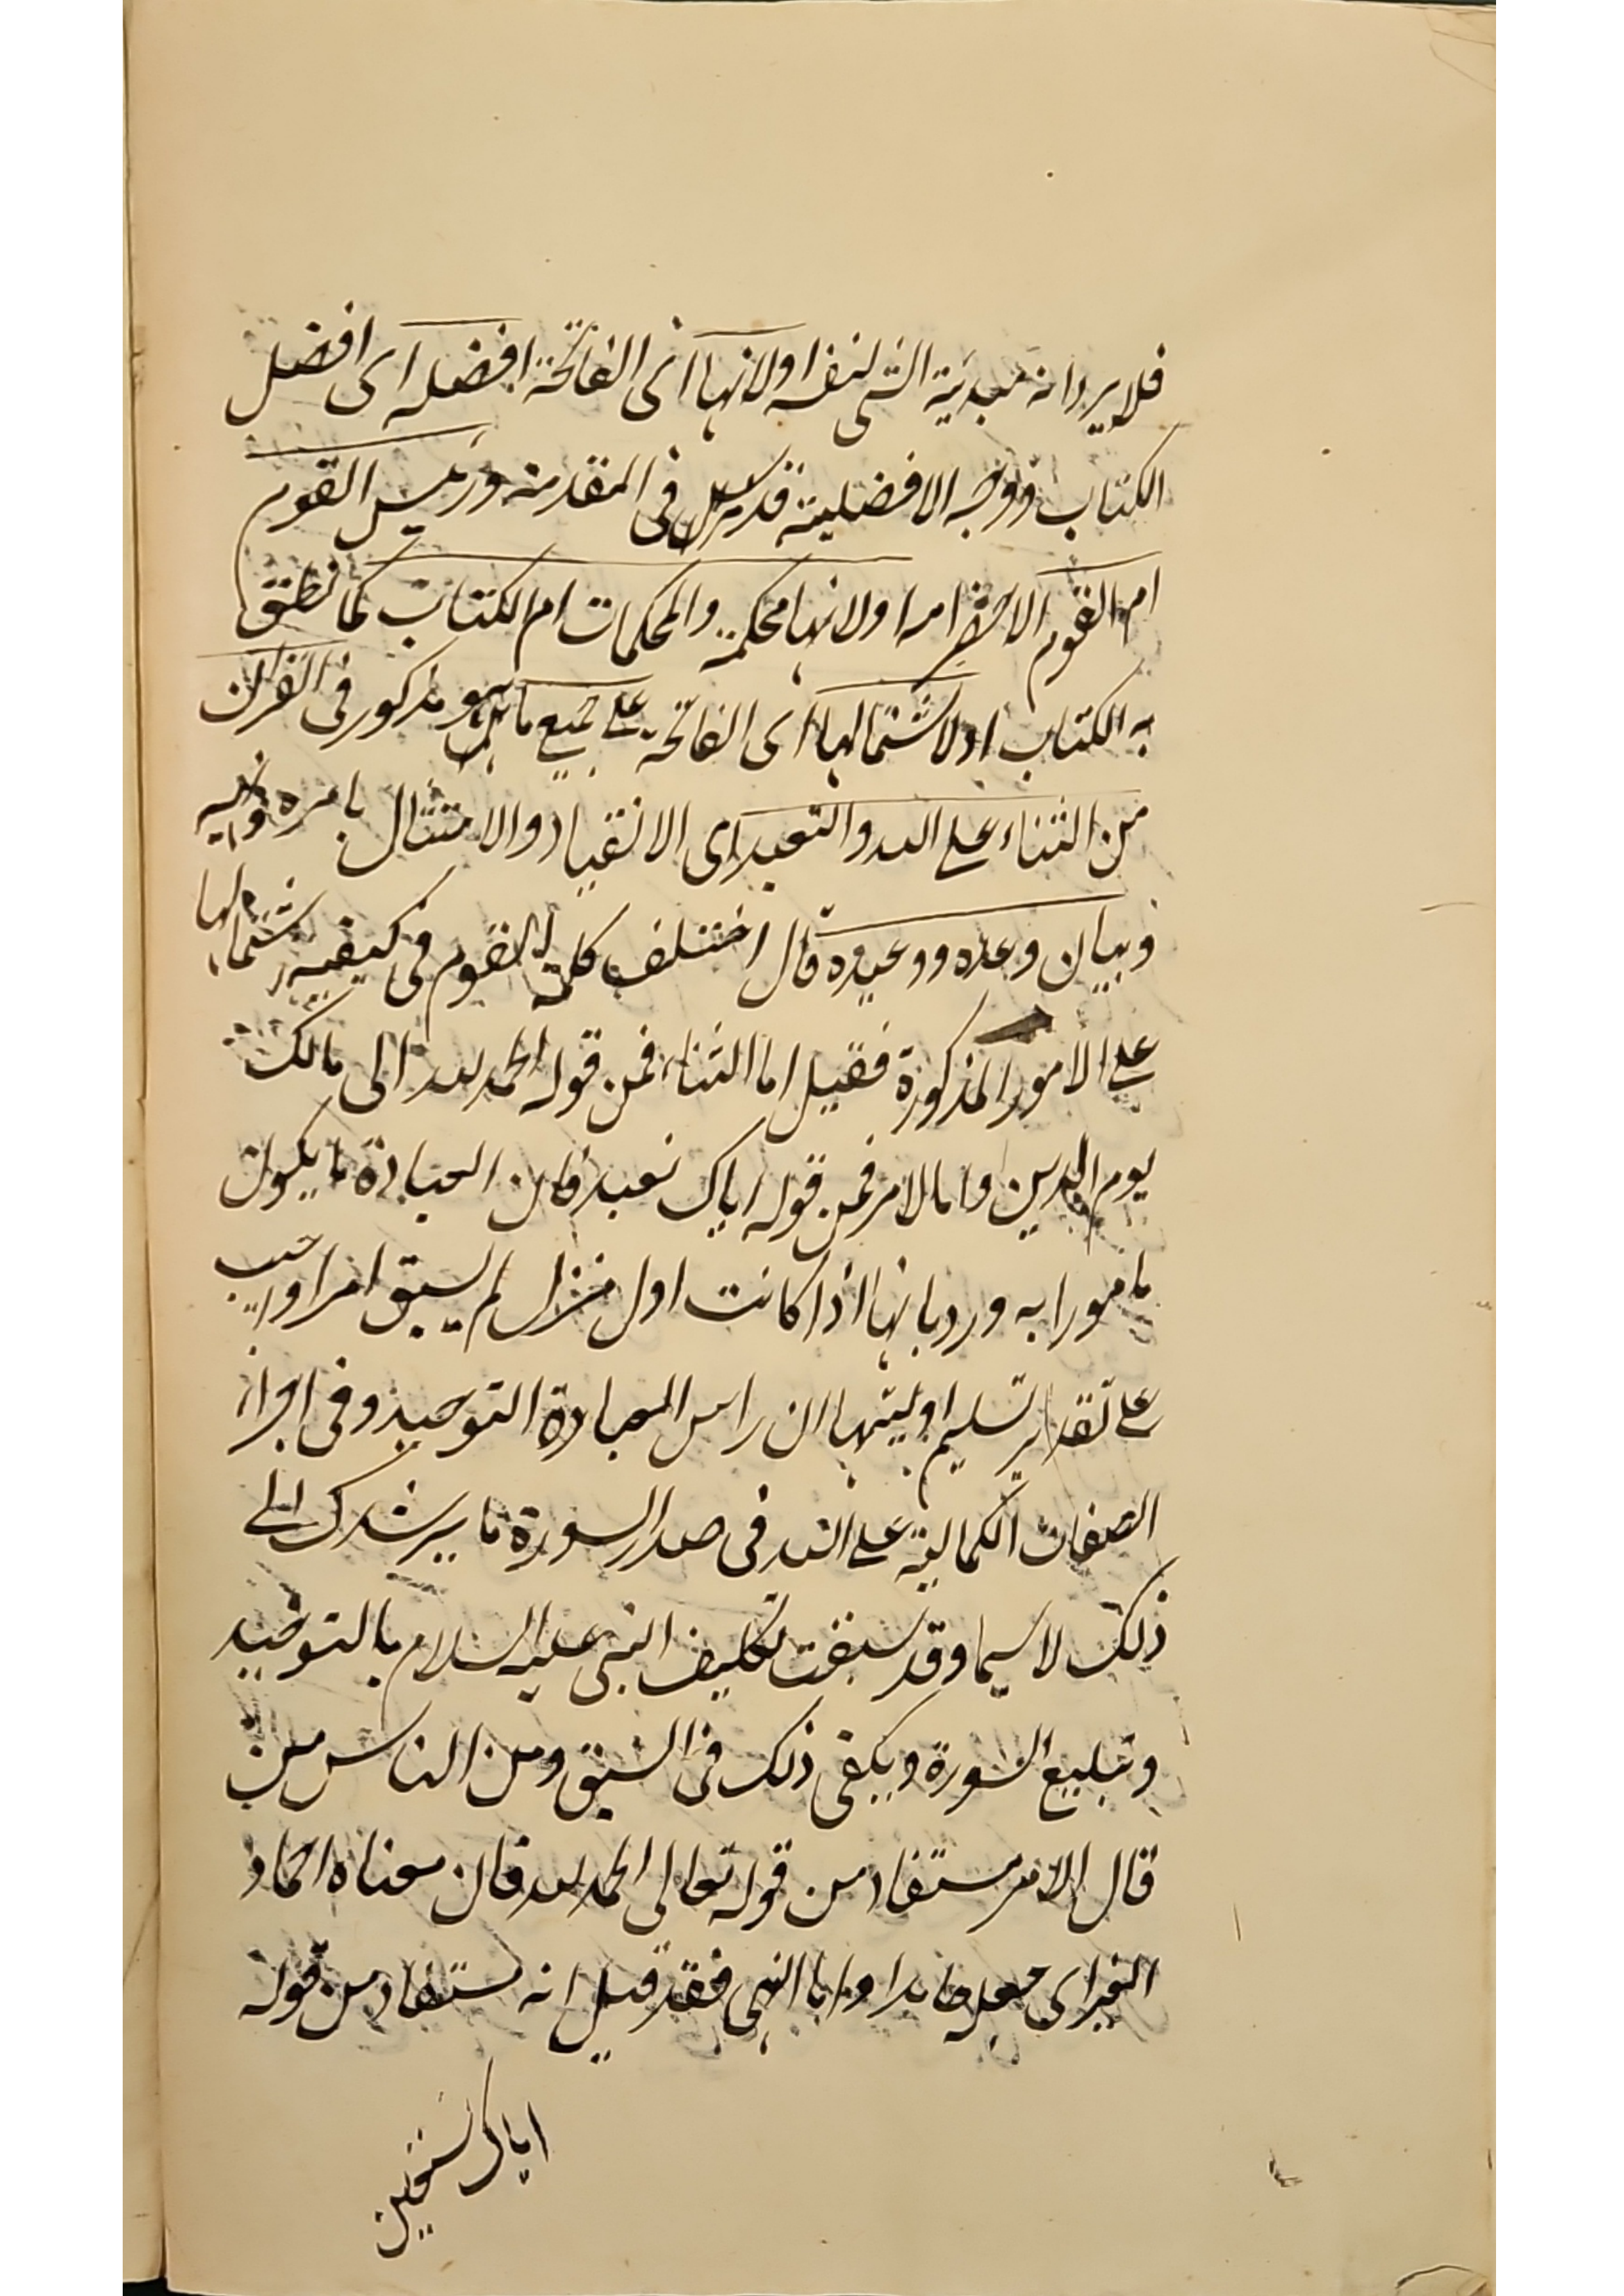 فلا يرد انه مبدئية الشى لنفسه او لانها اى الفاتحة افضله اى افضل
الكتاب ووجه الافضلية قد مر فى المقدمة ورئيس القوم
ام القوم الا امه او لانها محكمة والمحكمات ام الكتاب كما نطق
به الكتاب او لاشتمالها اى الفاتحة على جميع ما هو مذكور فى القران
من الثناء على الله والتعبد اى الانقياد والامتثال بامره ونهيه
وبيان وعده ووعيده قال اختلف كلمة القوم فى كيفية اشتمالها
على الامور المذكورة فقيل اما الثناء فمن قوله الحمد لله الى مالك
يوم الدين واما الامر فمن قوله اياك نعبد فان العبادة ما يكون
مامورا به ورد بانها اذا كانت اول منزل لم يسبق امر اواجيب
على تقدير تسليم اوليتها ان راس العبادة التوحيد وفى اجراء
الصفات الكمالية على الله فى صدر السورة ما يرشدك الى
ذلك لا سيما وقد سبقت تكليف النبى عليه السلام بالتوحيد
وتبليغ السورة ويكفى ذلك فى السبق ومن الناس من
قال الامر مستفاد من قوله تعالى الحمد لله فان معناه احماد
الغير اى جعله حامدا واما النهى فقد قيل انه مستفاد من قوله
اياك نستعين